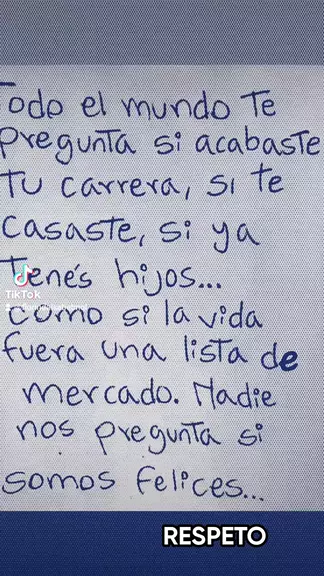 Todo el mundo Te
pregunta si acabaste
Tu carrera, si te
casaste, si ya
Tenés hijos...
TikTok
como si la vida
fuera una lista de
mercado. Nadie
nos pregunta si
somos felices...
RESPETO